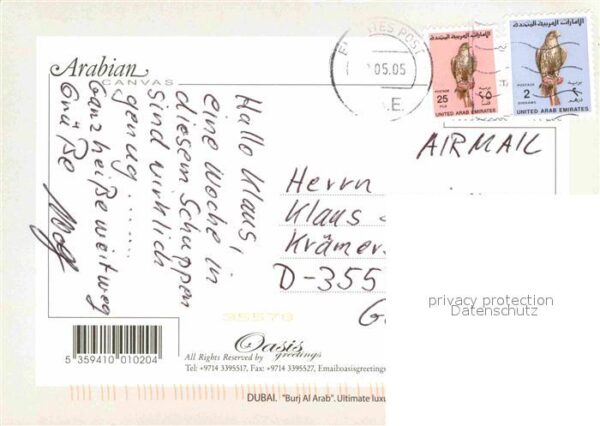 Arabian
CANVAS
EMIRATES POST
05.05
.E.
الإمارات العربية المتحدة
POSTAGE
25
FILS
٢٥
UNITED ARAB EMIRATES
الإمارات العربية المتحدة
POSTAGE
2
DIRHAMS
٢
UNITED ARAB EMIRATES
AIRMAIL
Hallo Klaus,
eine Woche in
diesem Schuppen
sind wirklich
genug......
Ganz heiße weit weg
Grüße
Herrn
Klaus
Krämer
D-355
G
35578
5 359410 010204
Oasis
greetings
All Rights Reserved by
Tel: +9714 3395517, Fax: +9714 3395527, Email:oasisgreeting
DUBAI. "Burj Al Arab". Ultimate luxu
privacy protection
Datenschutz